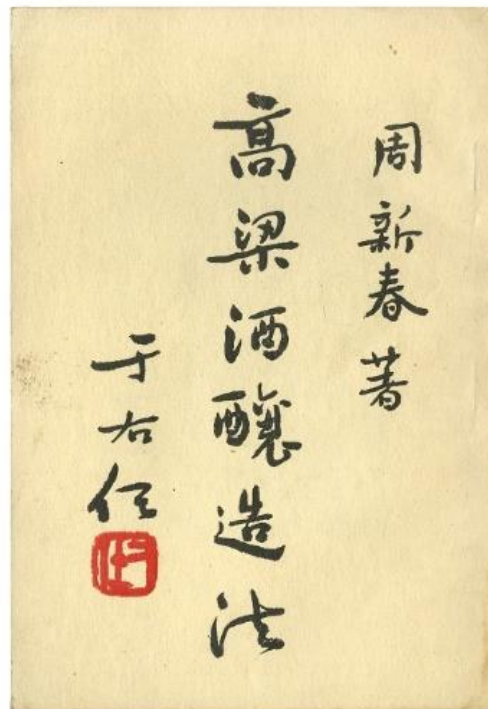 周新春著
高梁酒釀造法
于右任